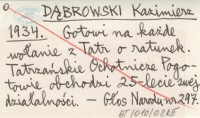 DĄBROWSKI Kazimierz
1934. Gotowi na każde
wołanie z Tatr o ratunek.
Tatrzańskie Ochotnicze Pogo-
towie obchodzi 25-lecie swej
działalności. – Głos Narodu nr 297.